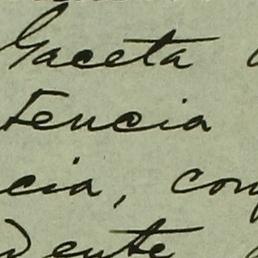 Gaceta
tencia
cia, con
dente